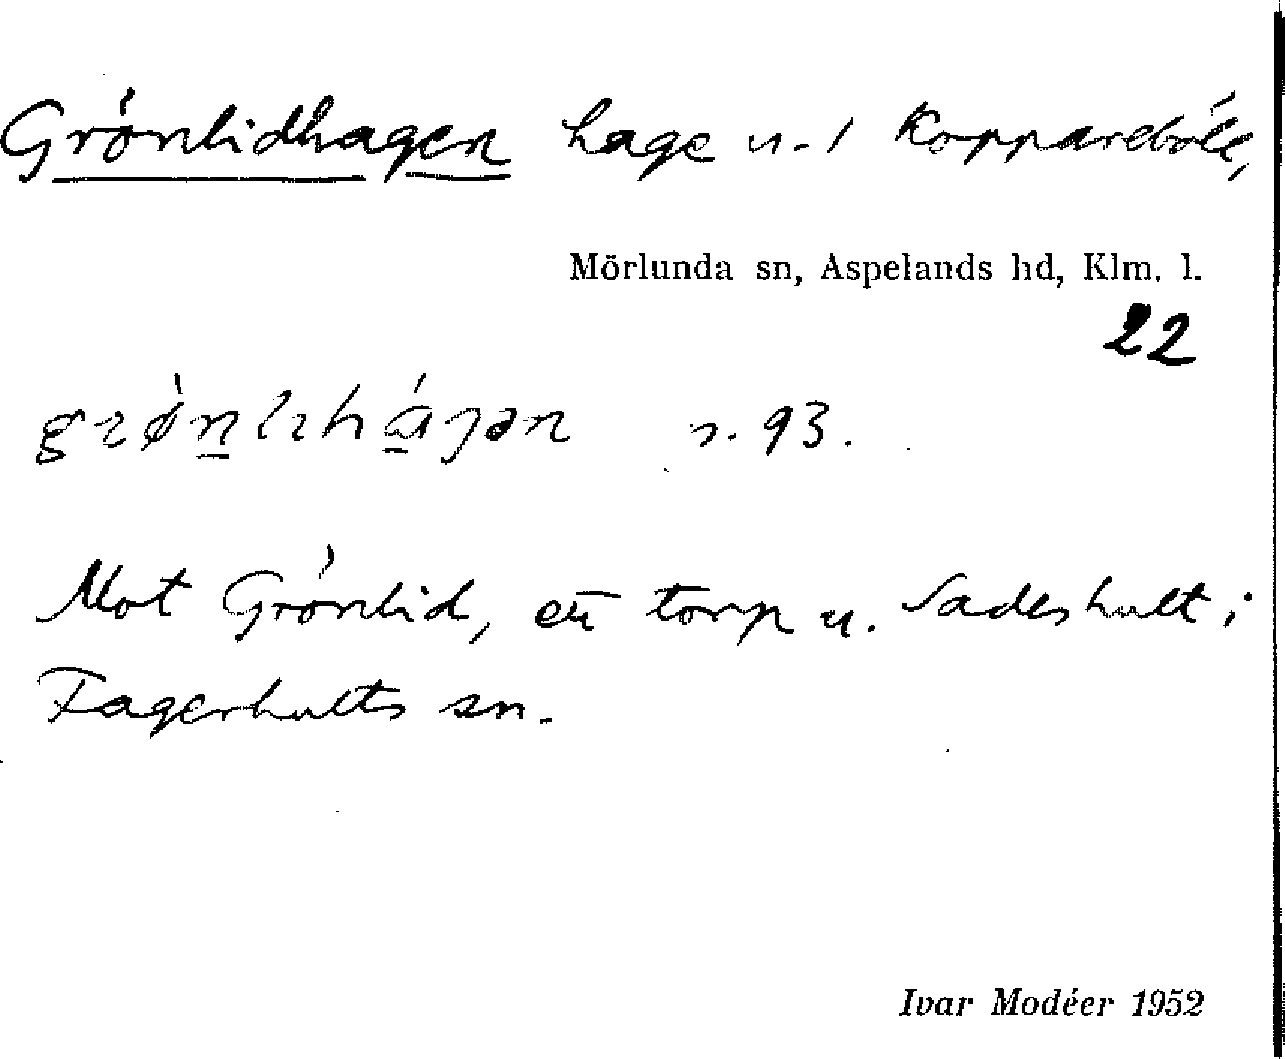 Grönlidhagen hage u. 1 Koppareböle,
Mörlunda sn, Aspelands hd, Klm. l.
22
s. 93.
Mot Grönlid, ett torp u. Sadeshult i
Fagerhults sn.
Ivar Modéer 1952